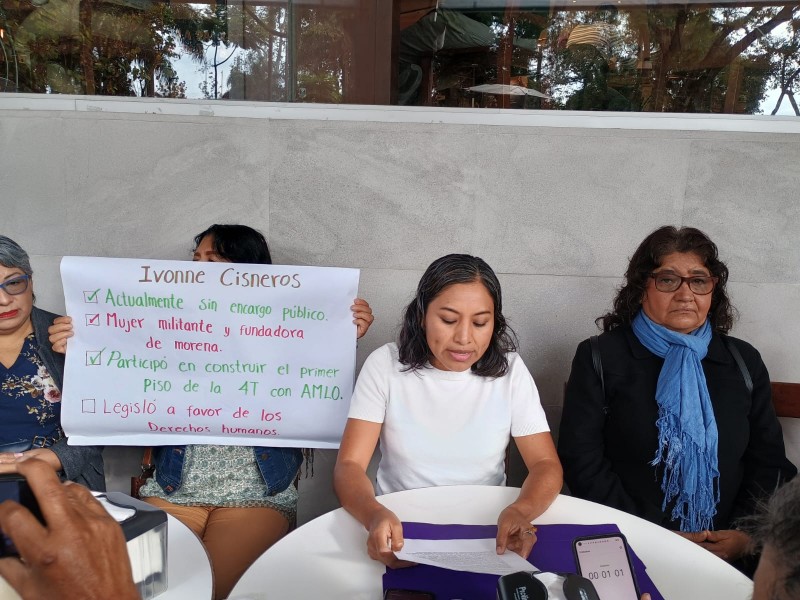 Ivonne Cisneros
Actualmente sin encargo público.
Mujer militante y fundadora
de morena.
Participó en construir el primer
Piso de la 4T con AMLO.
Legisló a favor de los
Derechos humanos.
00:01:01